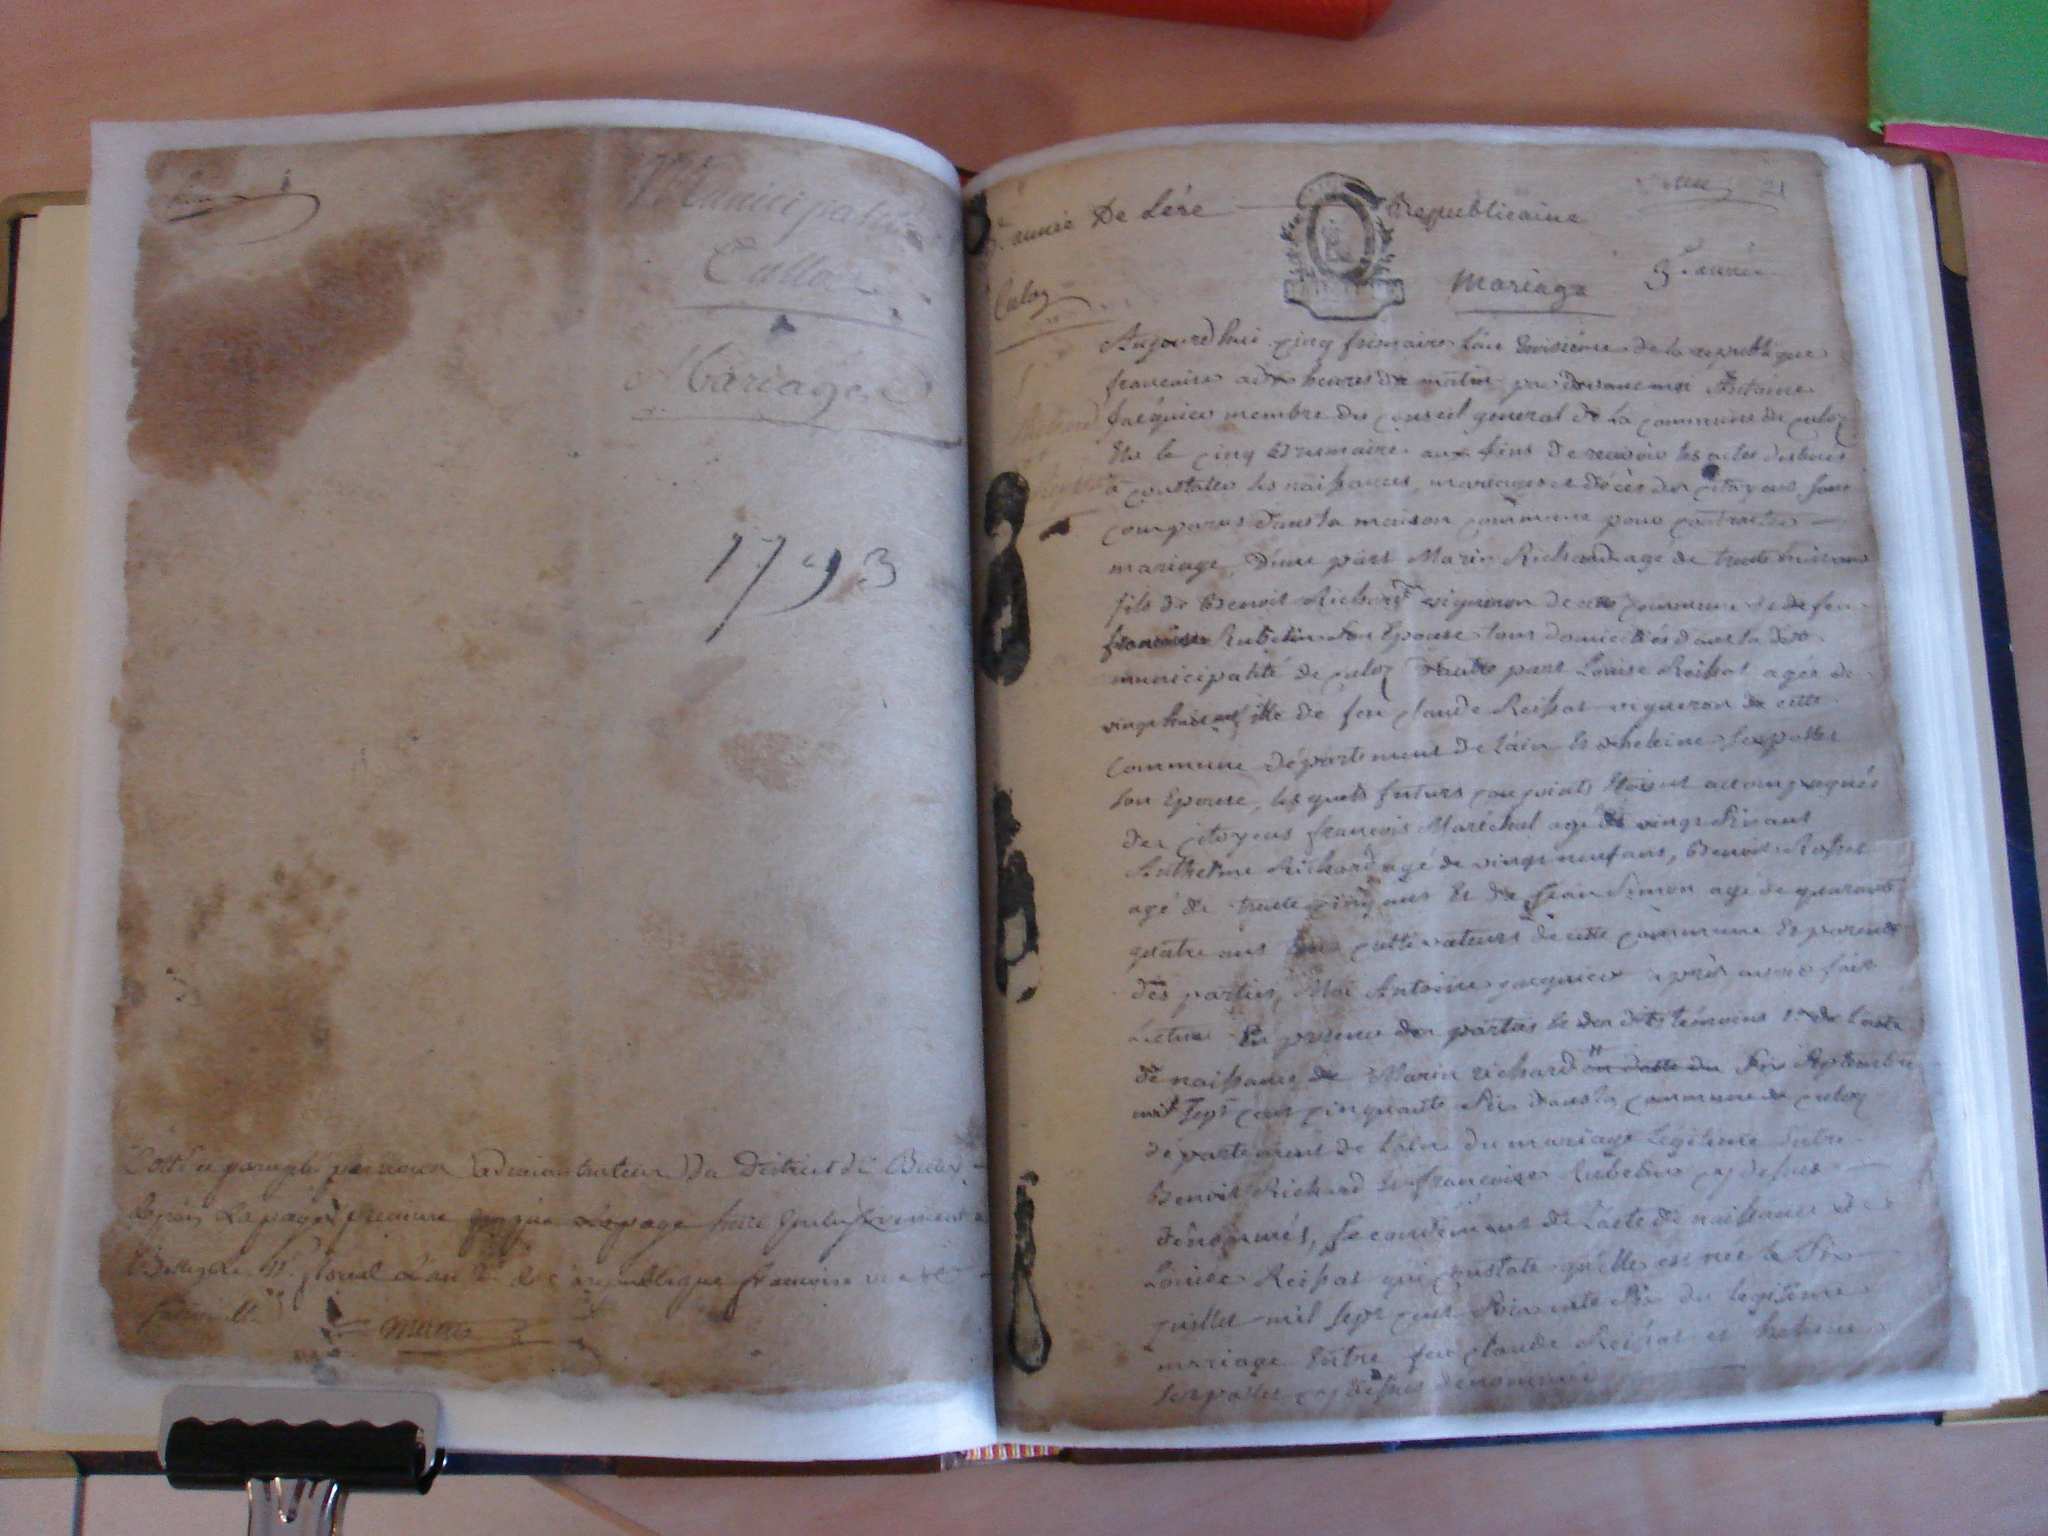 Municipalité
Culloz
Mariages
1793
administrateur Du District de Belley
première page
floreal L'an 2e de la republique francoise
année De Lére Republicaine
21
Mariage 3e année
Culoz
Aujourd'huy cinq frimaire l'an troisieme de la republique
francaise a dix heures du matin par devant moi Antoine
Jacquier membre du conseil general de la commune de culoz
élu le cinq Brumaire aux fins de recevoir les actes destinés
a constater les naissances, mariages et décès des citoyens sont
comparus dans la maison commune pour contracter
mariage, D'une part Marin Richard agé de trente huit ans
fils de Benoit Richard vigneron de cette commune et de feu
francoise Rubelin son Epouse tous domiciliés dans la dite
municipalité de culoz D'autre part Louise Reissat agée de
vingt huit ans fille de feu claude Reissat vigneron de cette
commune département de Lain Et de heleine
son Epouse, lesquels futurs conjoints étoient accompagnés
des citoyens francois Maréchal agé de vingt six ans
Anthelme Richard agé de vingt neuf ans, Benoit Rosset
agé de trente cinq ans Et de Jean Simon agé de quarante
quatre ans tous cultivateurs de cette commune Et parents
des parties, Moi Antoine Jacquier après avoir fait
lecture En presence des parties Et des dits témoins 1° de l'acte
de naissance de Marin richard en datte du six septembre
mil sept cent cinquante six dans la commune de culoz
département de Lain du mariage legitime entre
Benoit Richard Et francoise Rubelin cy dessus
dénommés, secondement de L'acte de naissance de
Louise Reissat qui constate qu'elle est née le six
juillet mil sept cent soixante six du legitime
mariage Entre feu claude Reissat et heleine
cy dessus dénommés